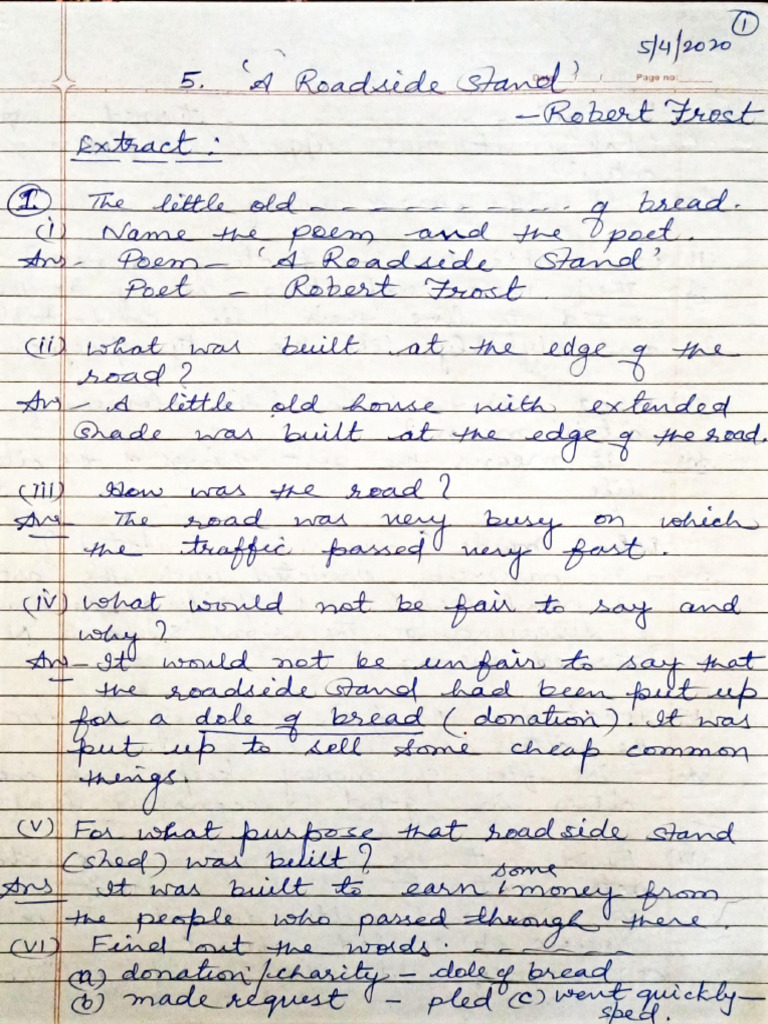 1
5/4/2020
5. 'A Roadside Stand' Page no:
- Robert Frost
Extract:
1. The little old - - - - - - - - - - of bread.
(i) Name the poem and the poet.
Ans - Poem - 'A Roadside Stand'
Poet - Robert Frost
(ii) What was built at the edge of the
road?
Ans - A little old house with extended
shade was built at the edge of the road.
(iii) How was the road?
Ans - The road was very busy on which
the traffic passed very fast.
(iv) What would not be fair to say and
why?
Ans - It would not be unfair to say that
the roadside stand had been put up
for a dole of bread (donation). It was
put up to sell some cheap common
things.
(v) For what purpose that roadside stand
(shed) was built?
Ans It was built to earn some money from
the people who passed through there.
(vi) Find out the words. - - - - - - -
(a) donation/charity - dole of bread
(b) made request - pled (c) went quickly -
sped.